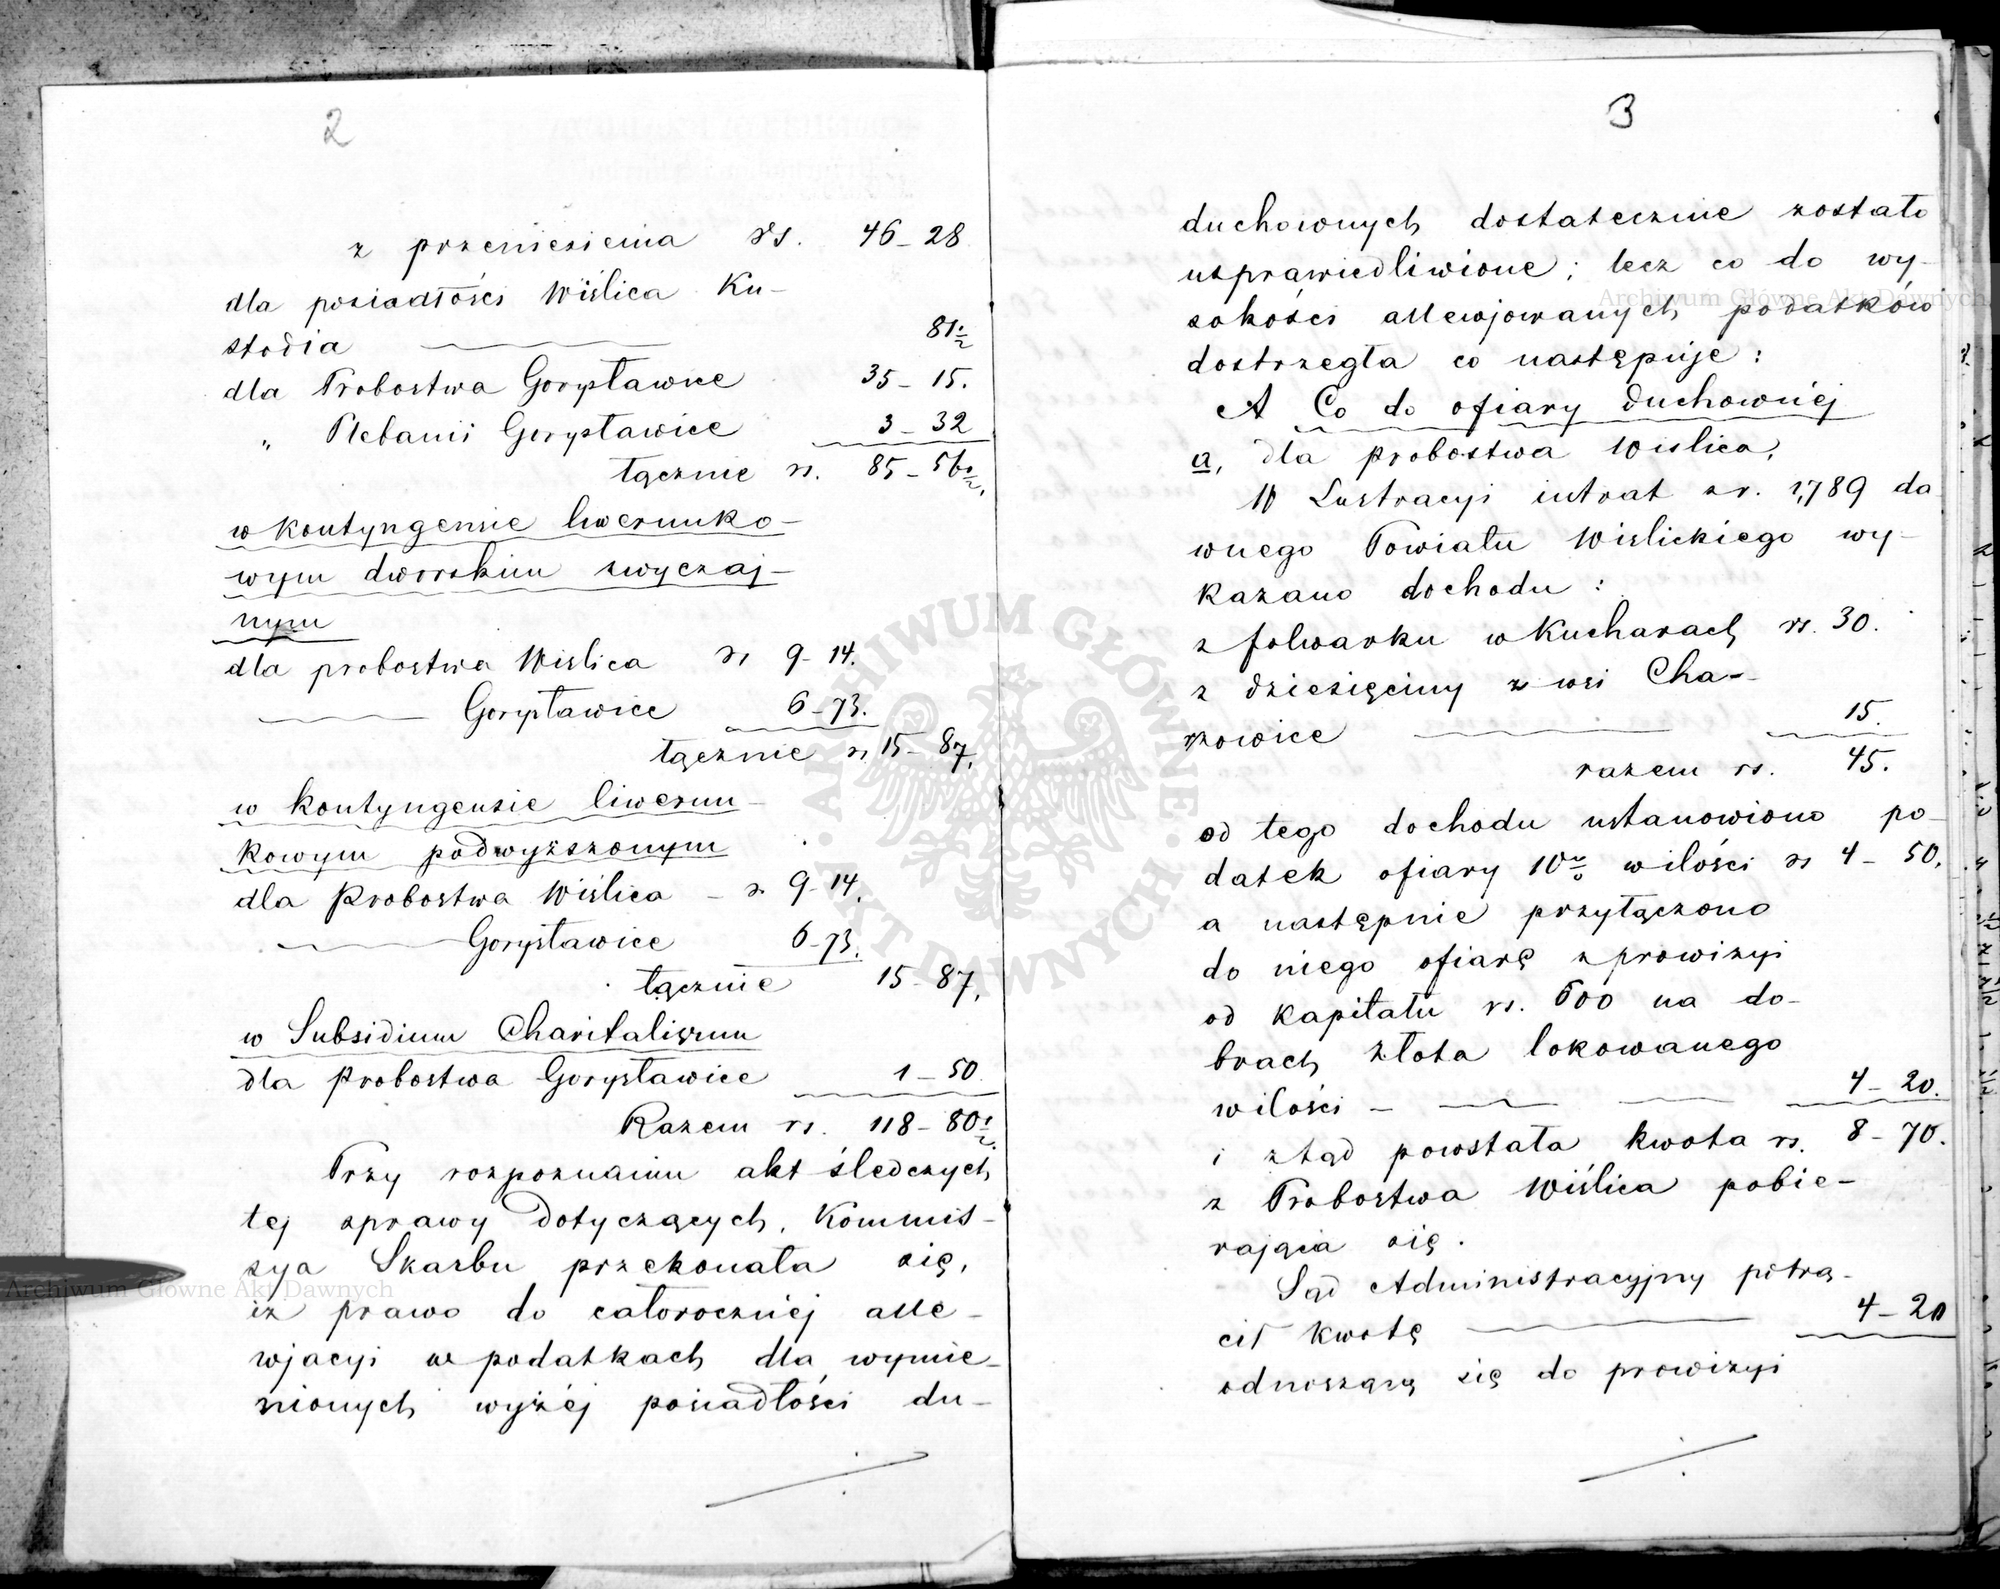 2
z przeniesienia rs. 46-28
dla posiadłości Wiślica Ku-
stodia 81½
dla Probostwa Gorysławice 35-15.
„ Plebanii Gorysławice 3-32
łącznie rs. 85-56½.
w kontyngensie liwerunko-
wym dworskim zwyczaj-
nym
dla probostwa Wislica rs 9-14.
Gorysławice 6-73.
łącznie rs 15-87.
w kontyngensie liwerun-
kowym podwyższonym
dla Probostwa Wiślica - rs. 9-14.
Gorysławice 6-73.
łącznie 15-87.
w Subsidium Charitativum
dla Probostwa Gorysławice 1-50.
Razem rs. 118-80½.
Przy rozpoznaniu akt śledczych
tej sprawy dotyczących, Kommis-
sya Skarbu przekonała się,
iż prawo do całoroczniej alle-
wjacyi w podatkach dla wymie-
nionych wyżéj posiadłości du-
3
duchownych dostatecznie zostało
usprawiedliwione; lecz co do wy-
sokości allewjowanych podatków
dostrzegła co następuje:
A Co do ofiary duchownéj
a, dla probostwa Wislica,
W Lustracyi intrat z r. 1,789 da
wnego Powiatu Wislickiego wy-
kazano dochodu:
z folwarku w Kucharach rs. 30.
z dziesięciny z wsi Cha-
rzowice 15.
razem rs. 45.
od tego dochodu ustanowiono po-
datek ofiary 10% wilości rs 4-50.
a następnie przyłączono
do niego ofiarę z prowizyi
od kapitału rs. 600 na do-
brach Złota lokowanego
wilości - 4-20.
i ztąd powstała kwota rs. 8-70.
z Probostwa Wiślica pobie-
rająca się.
Sąd Administracyjny potrą-
cił kwotę 4-20
odnoszącą się do prowizyi
Archiwum Główne Akt Dawnych
Archiwum Główne Akt Dawnych
ARCHIWUM GŁÓWNE AKT DAWNYCH